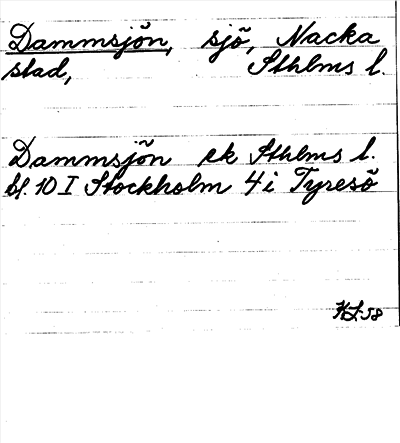 Dammsjön, sjö, Nacka
stad, Sthlms l.
Dammsjön ek Sthlms l.
bl. 10 I Stockholm 4 i Tyresö
KL-58